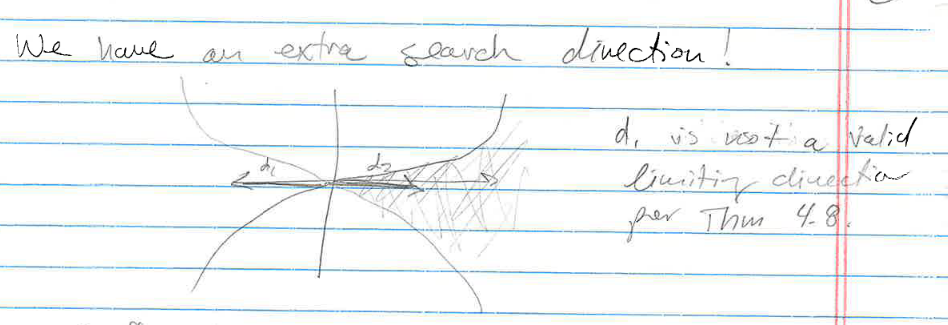 We have an extra search direction!
d₁ d₂
d₁ is not a valid
limiting direction
per Thm 4.8.